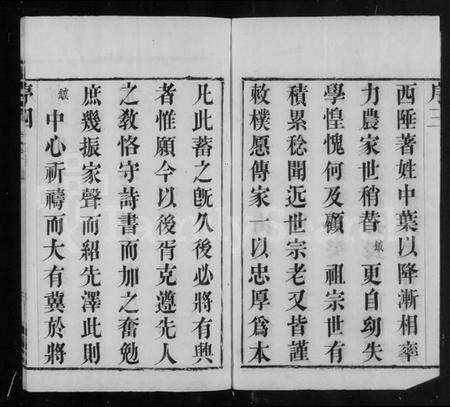 序三
西陲著姓中葉以降漸相率
力農家世稍替 𤧬 更自幼失
學惶愧何及顧 祖宗世有
積累稔聞近世宗老又皆謹
敕樸愿傳家一以忠厚爲本
凡此蓄之旣久後必將有興
者惟願今以後胥克遵先人
之敎恪守詩書而加之奮勉
庶幾振家聲而紹先澤此則
中心祈禱而大有冀於將
序四